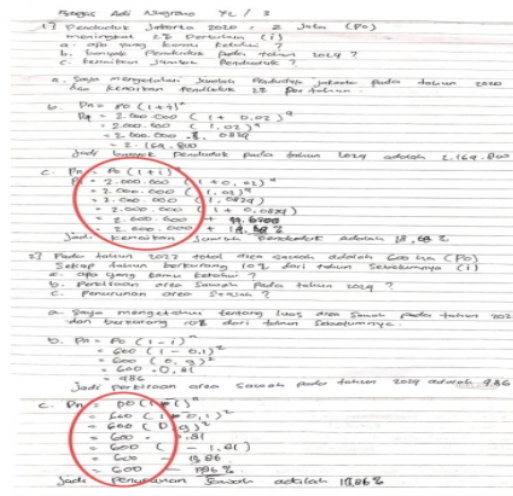 Adi Nugroho XL / 3
1) Penduduk Jakarta 2020 = 2 Juta (Po)
meningkat 2% Pertahun (i)
a. apa yang kamu ketahui ?
b. banyak Penduduk pada tahun 2024 ?
c. kenaikan jumlah Penduduk ?
a. Saya mengetahui Jumlah Penduduk jakarta pada tahun 2020
dan kenaikan penduduk 2% per tahun.
b. Pn = Po (1+i)ⁿ
= 2.000.000 ( 1 + 0,02)⁴
= 2.000.000 (1,02)⁴
= 2.000.000 . 0824
= 2.164.800
Jadi banyak Penduduk pada tahun 2024 adalah 2.164.800
c. Pn = Po (1+i)ⁿ
= 2.000.000 ( 1 + 0,02)⁴
= 2.000.000 (1,02)⁴
= 2.000.000 (1,0824)
= 2.000.000 ( 1 + 0,0824)
= 2.000.000 +
= 2.000.000 + %
Jadi kenaikan Jumlah Penduduk adalah %
2) Pada tahun 2022 total area sawah adalah 600 ha (Po)
Setiap tahun berkurang 10% dari tahun Sebelumnya (i)
a. apa yang kamu ketahui ?
b. Perkiraan area Sawah Pada tahun 2024 ?
c. Penurunan area Sawah ?
a. Saya mengetahui tentang luas area Sawah pada tahun 202
dan berkurang 10% dari tahun Sebelumnya.
b. Pn = Po (1 - i)ⁿ
= 600 (1 - 0,1)²
= 600 (0,9)²
= 600 . 0,81
= 486
Jadi perkiraan area sawah pada tahun 2024 adalah 486
c. Pn = Po (1 i)ⁿ
= 600 ( 1 0,1)²
= 600 ( 0,9)²
= 600 . 0,81
= 600 ( - 1,81)
= 600 -
= 600 - %
Jadi Penurunan Sawah adalah %